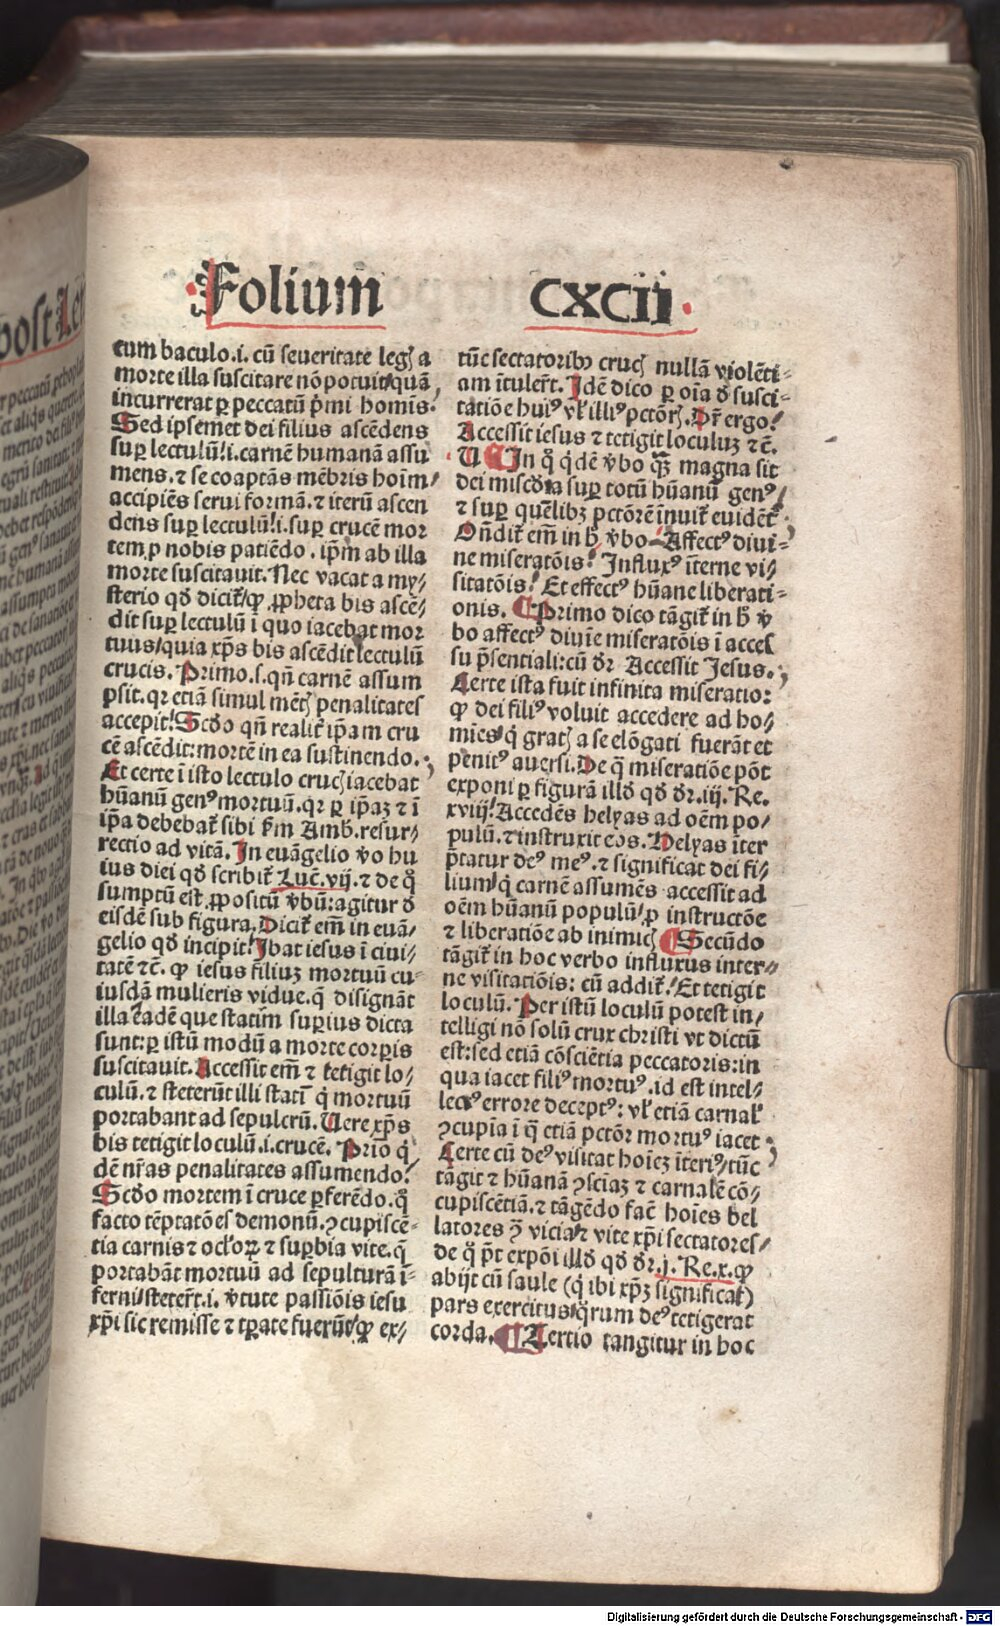 Folium CXCII
cum baculo.i. cū seueritate legꝭ a
morte illa suscitare nō potuit/quā
incurrerat ꝑ peccatū p̄mi homīs.
Sed ipsemet dei filius ascēdens
suꝑ lectulū!i.carnē humanā assu
mens.⁊ se coaptās mēbris hoīm/
accipiēs serui formā.⁊ iterū ascen
dens suꝑ lectulū!i.suꝑ crucē mor
tem ꝓ nobis patiēdo. ip̄m ab illa
morte suscitauit. Nec vacat a my/
sterio qđ dicit̄/ꝙ ꝓpheta bis ascē/
dit suꝑ lectulū ī quo iacebat mor
tuus/quia xp̄s bis ascēdit lectulū
crucis. Primo.s.qn̄ carnē assum
psit. qr etiā simul mēt̄ꝭ penalitates
accepit! Scđo qn̄ realit̄ ip̄am cru
cē ascēdit:mortē in ea sustinendo.
Et certe ī isto lectulo crucꝭ iacebat
hūanū genꝰ mortuū.qr ꝑ ip̄aꝫ ⁊ ī
ip̄a debebat̄ sibi s̄m Amb.resur/
rectio ad vitā. In euāgelio v̄o hu
ius diei qđ scribit̄ Luē.vij.⁊ de q̊
sumptū est ꝓpositū v̄bū:agitur đ
eisdē sub figura. Dicit̄ em̄ in euā/
gelio qđ incipit! Ibat iesus ī ciui/
tatē ⁊c̄. ꝙ iesus filiuꝫ mortuū cu
iusdā mulieris vidue.q̄ disignāt
illa eādē que statim suꝑius dicta
sunt:ꝑ istū modū a morte corꝑis
suscitauit. Accessit em̄ ⁊ tetigit lo/
culū.⁊ steterūt illi statī q̇ mortuū
portabant ad sepulcrū. Uere xp̄s
bis tetigit loculū.i.crucē. Prīo q̇
dē nr̄as penalitates assumendo!
Scđo mortem ī cruce ꝑferēdo.q̊
facto tēptatōes demonū.ꝯcupiscē-
tia carnis ⁊ ocl'oꝝ ⁊ suꝑbia vite.q̄
portabāt mortuū ad sepulturā ī-
ferni/steter̄t.i. v̄tute passiōis iesu
xp̄i sic remisse ⁊ tꝑate fuerūt/ꝙ ex/
tūc sectatoribꝫ crucꝭ nullā violēti-
am ītuler̄t. Idē dico ꝑ oīa đ susci-
tatiōe huiꝰ vl' illiꝰ pctōrꝭ. Pr̄ ergo!
Accessit iesus ⁊ tetigit loculuꝫ ⁊c̄.
U ¶ In q̊ q̇dē v̄bo qꝫ magna sit
dei miscđia suꝑ totū hūanū genꝰ/
⁊ suꝑ quēlibꝫ pctōrē īnuit̄ euidēt̄.
On̄dit̄ em̄ in h̊ v̄bo Affectꝰ diui-
ne miseratōis! Influxꝰ īterne vi/
sitatōis! Et effectꝰ hūane liberati-
onis. ¶ Primo dico tāgit̄ in h̊ v̄
bo affectꝰ diuīe miseratōis ī acces
su p̄sentiali:cū đr Accessit Jesus.
Certe ista fuit infinita miseratio:
ꝙ dei filiꝰ voluit accedere ad ho/
mīes/q̇ gratꝭ a se elōgati fuerāt et
penitꝰ auersi. De q̄ miseratiōe pōt
exponi ꝑ figurā illđ qđ đr.iij. Re.
xviij! Accedēs helyas ad oēm po/
pulū.⁊ instruxit eos. Helyas iter
p̄tatur deꝰ meꝰ.⁊ significat dei fi/
lium/q̇ carnē assumēs accessit ad
oēm hūanū populū/ꝑ instructōe
⁊ liberatiōe ab inimicꝭ ¶ Secūdo
tāgit̄ in hoc verbo influxus inter/
ne visitatiōis: cū addit̄! Et tetigit
loculū. Per istū loculū potest in/
telligi nō solū crux christi vt dictū
est:sed etiā cōsciētia peccatoris:in
qua iacet filiꝰ mortuꝰ.id est intel/
lectꝰ errore deceptꝰ: vl' etiā carnal'
ꝯcupīa ī q̄ etiā pctōr mortuꝰ iacet
Certe cū deꝰ visitat hoīeꝫ īteriꝰ/tūc
tāgit ⁊ hūanā ꝯsciaꝫ ⁊ carnalē cō/
cupiscētiā.⁊ tāgēdo fac̄ hoīes bel
latores ꝯ̄ vicia/⁊ vite xp̄i sectatores/
de q̊ p̄t expōi illđ qđ đr.j. Re.x.ꝙ
abijt cū saule (q̇ ibi xp̄ꝫ significat̄)
pars exercitus/q̊rum deꝰ tetigerat
corda. ¶ Tertio tangitur in hoc